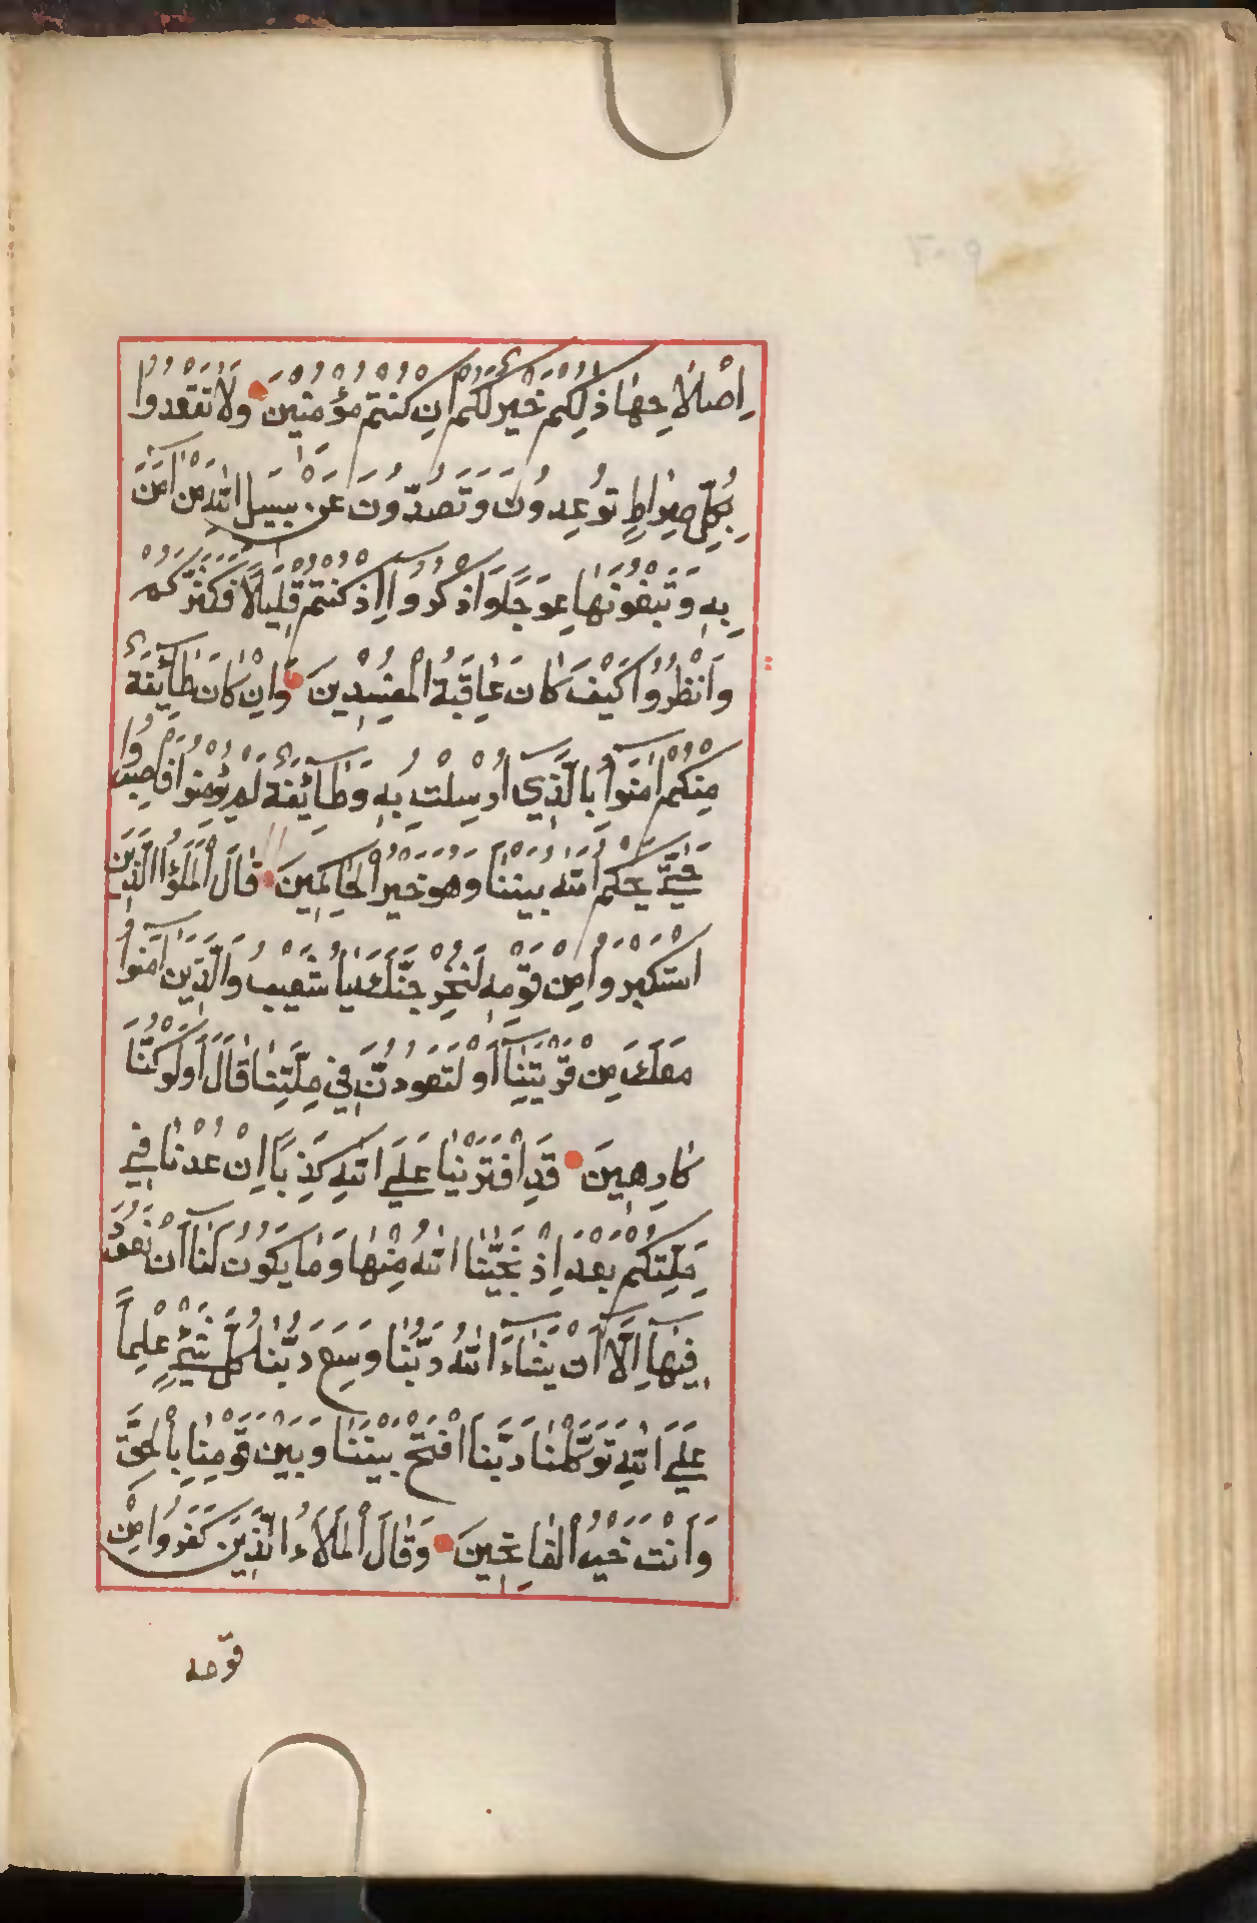 اِصْلَاحِهَا ذٰلِكُمْ خَيْرٌ لَكُمْ اِنْ كُنْتُمْ مُؤْمِنِينَ وَلَا تَقْعُدُوا
بِكُلِّ صِرَاطٍ تُوعِدُونَ وَتَصُدُّونَ عَنْ سَبِيلِ اللّٰهِ مَنْ اٰمَنَ
بِهِ وَتَبْغُونَهَا عِوَجًا وَاذْكُرُوا اِذْ كُنْتُمْ قَلِيلًا فَكَثَّرَكُمْ
وَانْظُرُوا كَيْفَ كَانَ عَاقِبَةُ الْمُفْسِدِينَ وَاِنْ كَانَ طَائِفَةٌ
مِنْكُمْ اٰمَنُوا بِالَّذِي اُرْسِلْتُ بِهِ وَطَائِفَةٌ لَمْ يُؤْمِنُوا فَاصْبِرُوا
حَتّٰى يَحْكُمَ اللّٰهُ بَيْنَنَا وَهُوَ خَيْرُ الْحَاكِمِينَ قَالَ الْمَلَؤُا الَّذِينَ
اسْتَكْبَرُوا مِنْ قَوْمِهِ لَنُخْرِجَنَّكَ يَا شُعَيْبُ وَالَّذِينَ اٰمَنُوا
مَعَكَ مِنْ قَرْيَتِنَا اَوْ لَتَعُودُنَّ فِي مِلَّتِنَا قَالَ اَوَلَوْ كُنَّا
كَارِهِينَ قَدِ افْتَرَيْنَا عَلَى اللّٰهِ كَذِبًا اِنْ عُدْنَا فِي
مِلَّتِكُمْ بَعْدَ اِذْ نَجَّيْنَا اللّٰهُ مِنْهَا وَمَا يَكُونُ لَنَا اَنْ نَعُودَ
فِيهَا اِلَّا اَنْ يَشَاءَ اللّٰهُ رَبُّنَا وَسِعَ رَبُّنَا كُلَّ شَيْءٍ عِلْمًا
عَلَى اللّٰهِ تَوَكَّلْنَا رَبَّنَا افْتَحْ بَيْنَنَا وَبَيْنَ قَوْمِنَا بِالْحَقِّ
وَاَنْتَ خَيْرُ الْفَاتِحِينَ وَقَالَ الْمَلَاءُ الَّذِينَ كَفَرُوا مِنْ
قومه